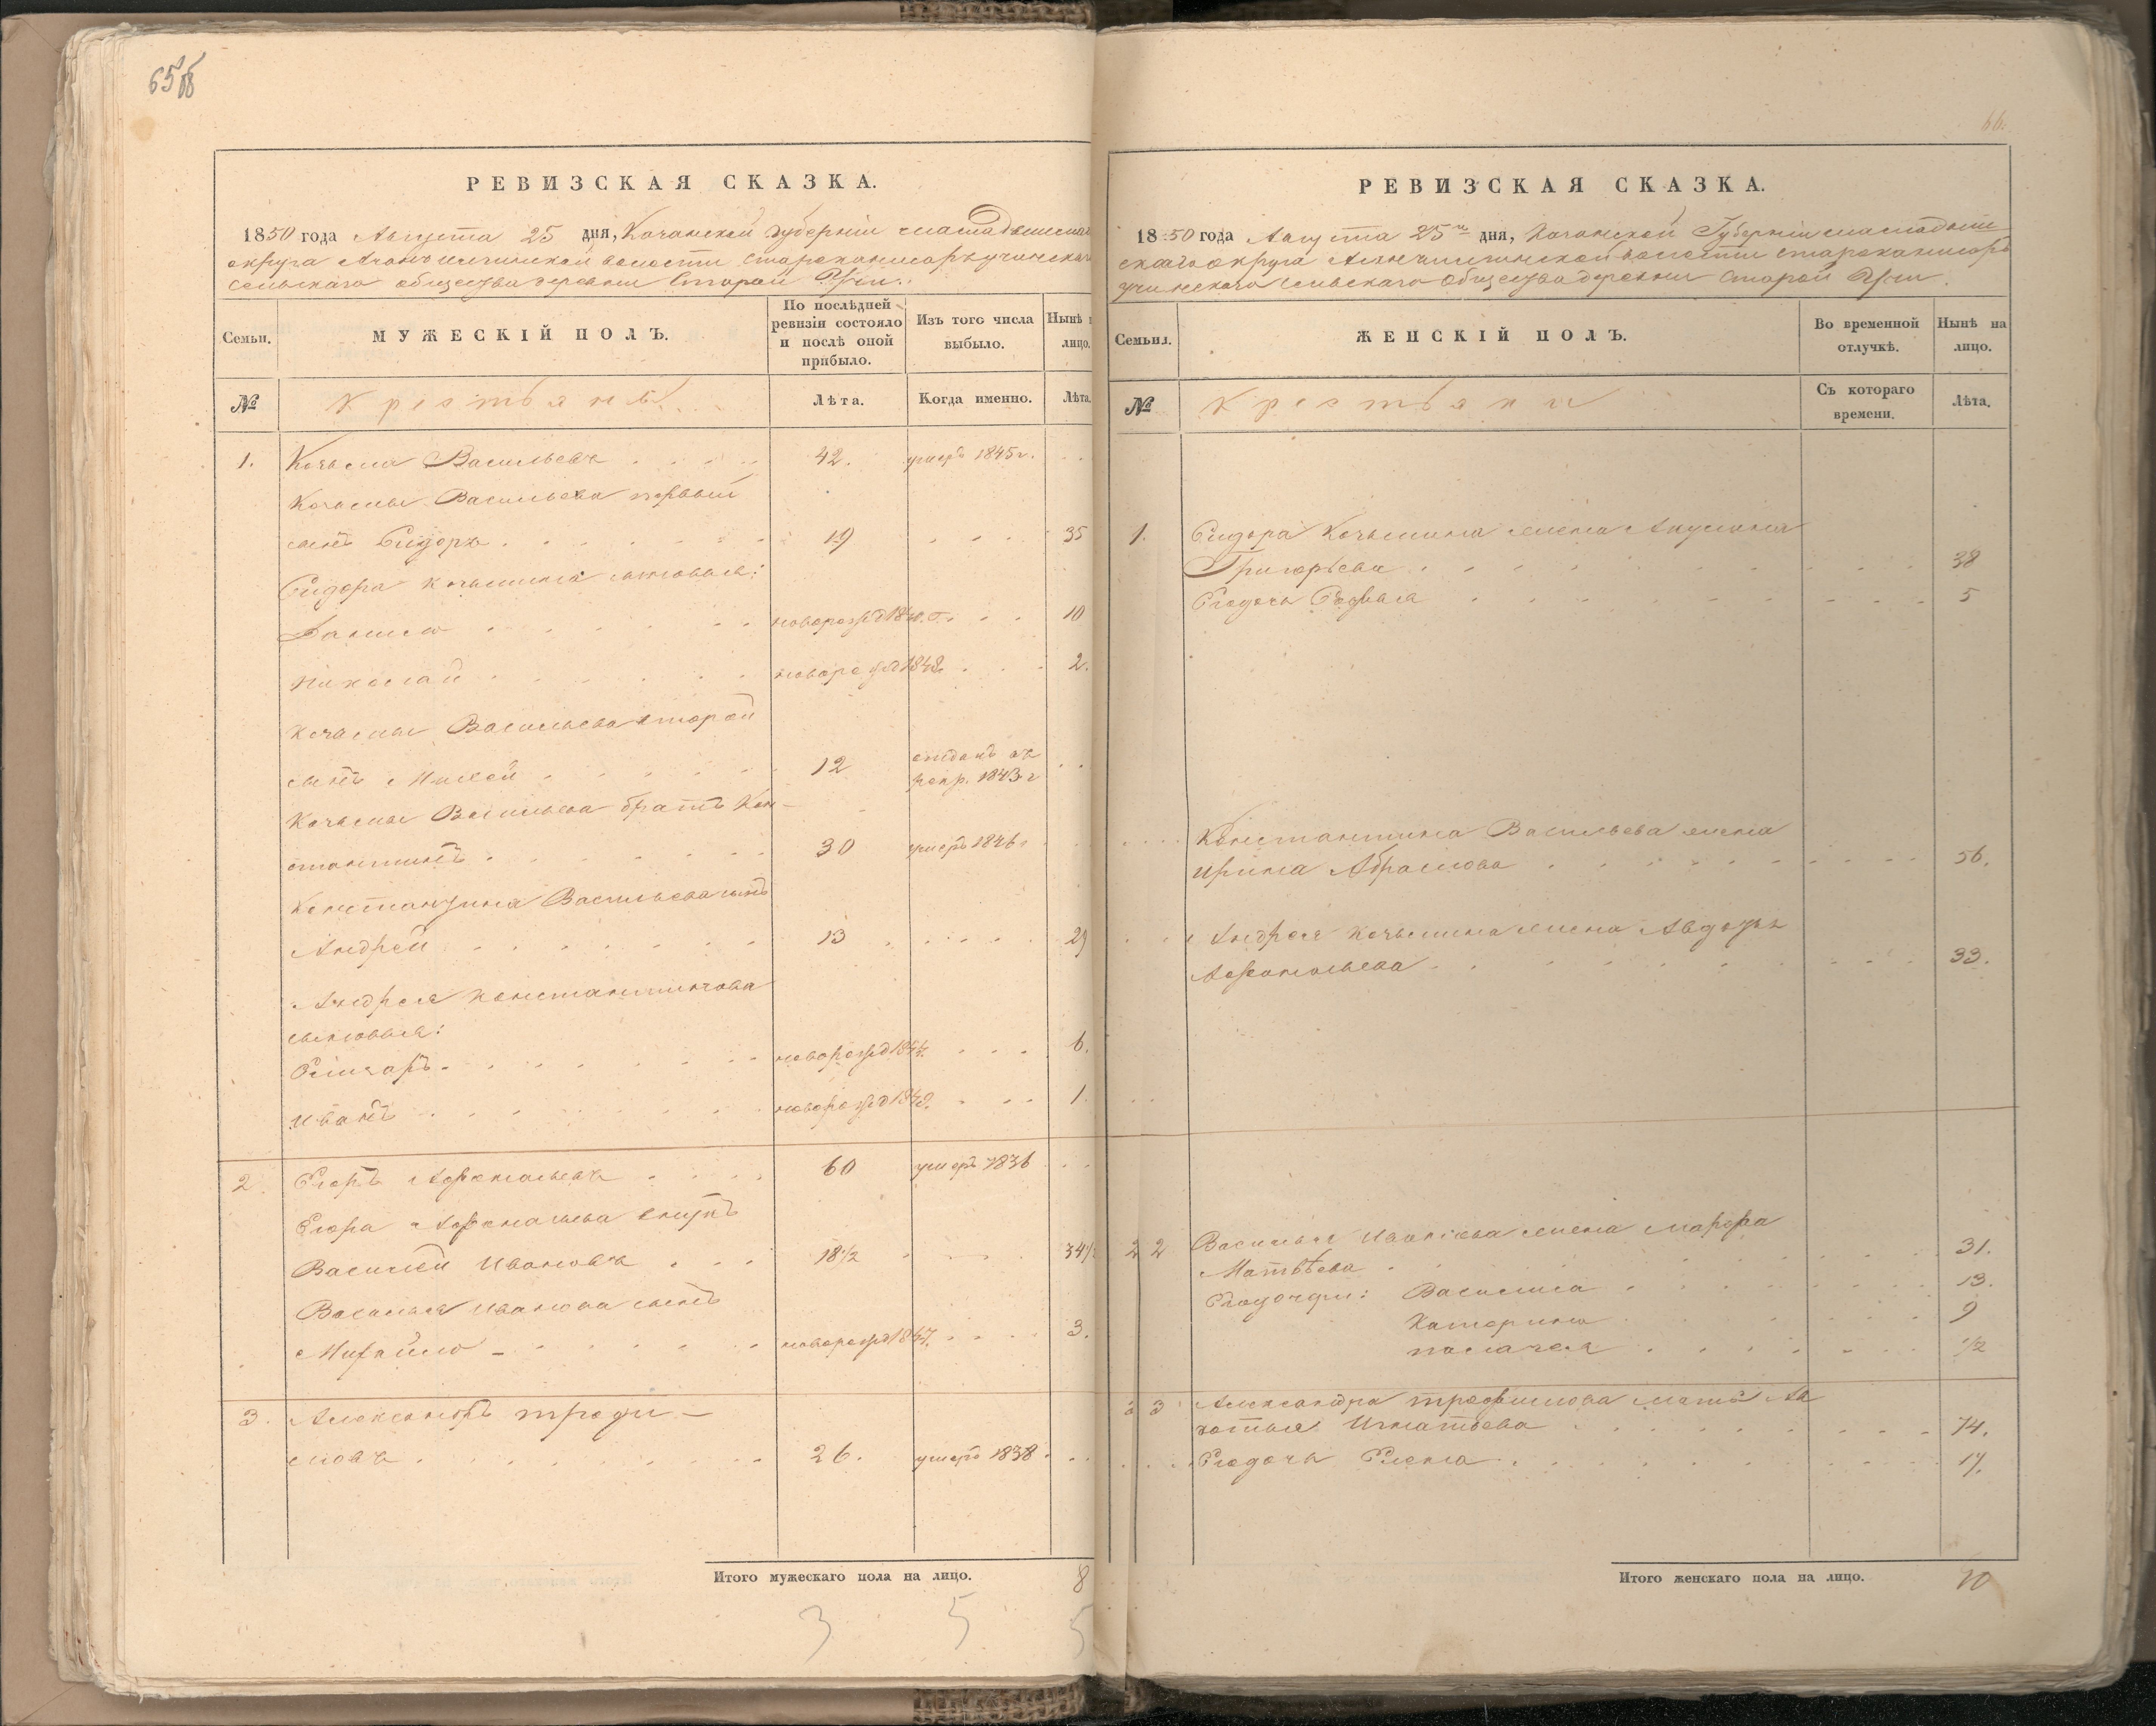 65об
РЕВИЗСКАЯ СКАЗКА.
1850 года Августа 25 дня, Казанской губернiи
округа волости
сельскаго общества деревни Старой Учи.
Семьи.
МУЖЕСКIЙ ПОЛЪ.
По послѣдней ревизiи состояло и послѣ оной прибыло.
Изъ того числа выбыло.
Нынѣ
лицо.
№
Крестьяне
Лѣта.
Когда именно.
Лѣта.
1. Козьма Васильевъ 42. умеръ 1845 г.
Козьмы Васильева первый
сынъ Сидоръ 19 35
Сидора Козьмина сыновья:
Данило новорожд 1840. 10
Николай новорожд 1848. 2.
Козьмы Васильева второй
сынъ Михей 12 отданъ въ рекр. 1843 г
Козьмы Васильева братъ Кон-
стантинъ 30 умеръ 1846 г
Константина Васильева сынъ
Андрей 13 29
Андрея Константинова
сыновья:
новорожд 1844. 6.
Иванъ новорожд 1849. 1.
2. Егоръ Афонасьевъ 60 умеръ 1836
Егора Афонасьева внукъ
Василей Ивановъ 18 1/2 34 1/2
Василья Иванова сынъ
Михайло новорожд 1847. 3.
3. Александръ Трофи-
мовъ 26. умеръ 1838
Итого мужескаго пола на лицо. 8
3 5 5
66.
РЕВИЗСКАЯ СКАЗКА.
1850 года Августа 25 дня, Казанской Губернiи Мамадыш
скаго округа волости
учинскаго сельскаго общества деревни Старой Учи.
Семьи.
ЖЕНСКIЙ ПОЛЪ.
Во временной отлучкѣ.
Нынѣ на лицо.
№
Крестьянки
Съ котораго времени.
Лѣта.
1. Сидора Козьмина жена Акулина
Григорьева 38
Егодочь 5
Константина Васильева жена
Ирина Абрамова 56.
Андрея Козьмина жена Авдотья
Афонасьева 33.
2 2 Василья Иванова жена Марфа
Матвѣева 31.
Егодочери: Василиса 13.
Катерина 9
Пелагея 1/2
3 3 Александра Трофимова мать
Игнатьева 74.
Егодочь Елена 17.
Итого женскаго пола на лицо. 10